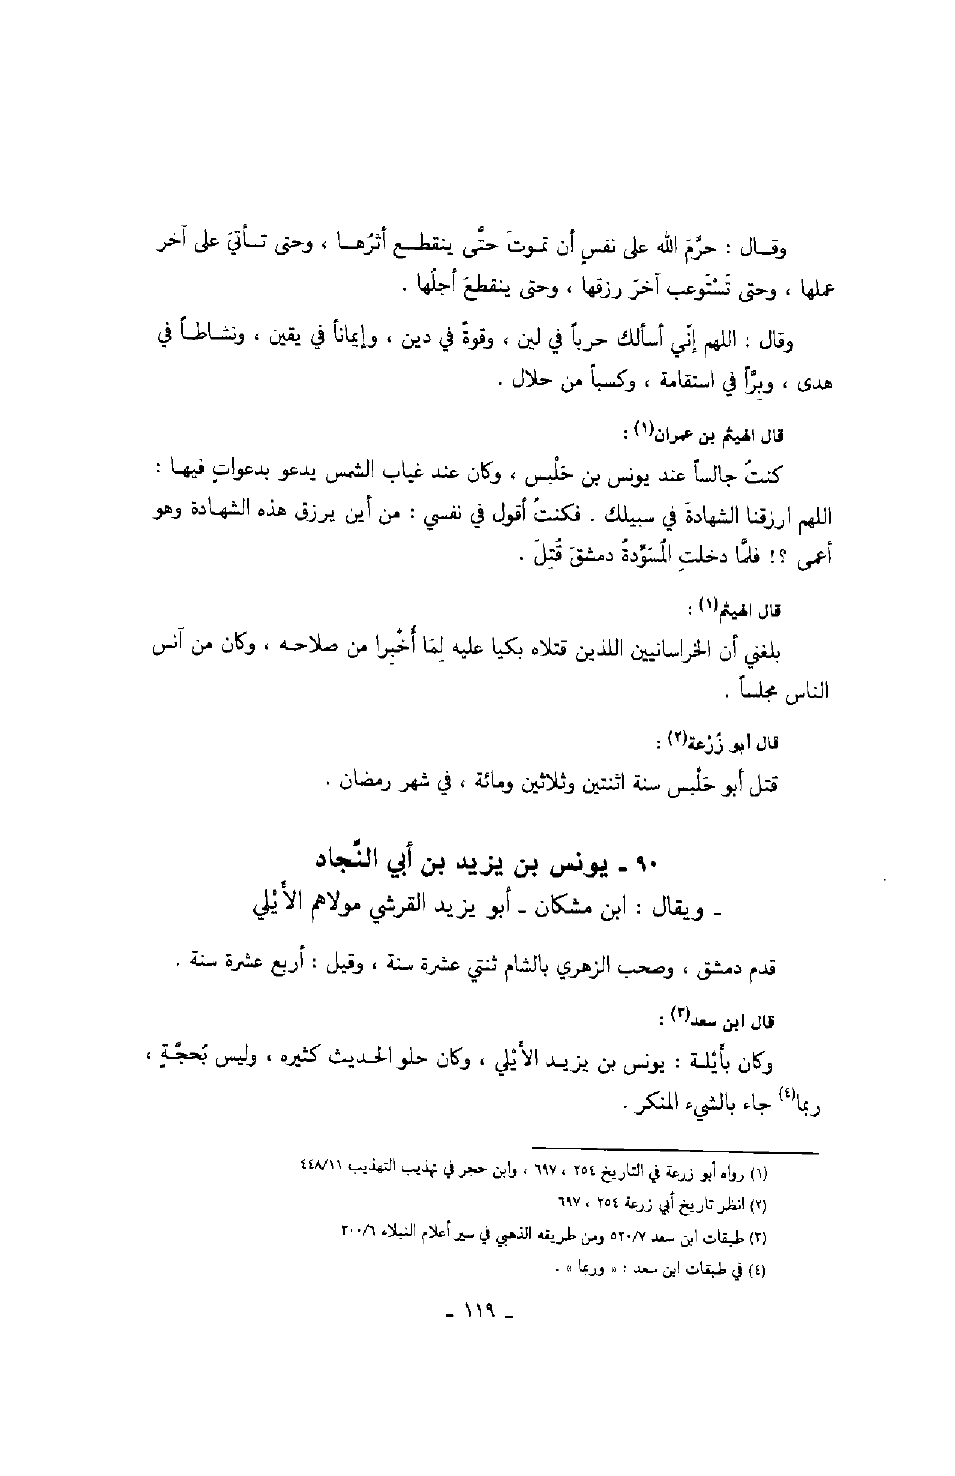 وقـال : حرَّمَ الله على نفسٍ أن تموتَ حتَّى ينقطـع أثرُهـا ، وحتى تـأتيَ على آخر
عملها ، وحتى تَسْتَوعب آخرَ رزقها ، وحتى ينقطعَ أجلُها .
وقال : اللهم إنّي أسألك حرباً في لين ، وقوةً في دين ، وإيماناً في يقين ، ونشـاطـاً في
هدى ، وبِرّاً في استقامة ، وكسباً من حلال .
قال الهيثم بن عمران(١) :
كنتُ جالساً عند يونس بن حَلْبس ، وكان عند غياب الشمس يدعو بدعواتٍ فيهـا :
اللهم ارزقنا الشهادةَ في سبيلك . فكنتُ أقول في نفسي : من أين يرزق هذه الشهـادة وهو
أعمى ؟! فلمَّا دخلتِ المُسَوِّدةُ دمشقَ قُتِلَ .
قال الهيثم(١) :
بلغني أن الخراسانيين اللذين قتلاه بكيا عليه لِمَا أُخْبِرا من صلاحـه ، وكان من آنس
الناس مجلسـاً .
قال أبو زُرْعة(٢) :
قتل أبو حَلْبس سنة اثنتين وثلاثين ومائة ، في شهر رمضان .
٩٠ ـ يونس بن يزيد بن أبي النِّجاد
ـ ويقال : ابن مشكان ـ أبو يزيد القرشي مولاهم الأَيْلي
قدم دمشق ، وصحب الزهري بالشام ثنتي عشرة سنة ، وقيل : أربع عشرة سنة .
قال ابن سعد(٣) :
وكان بأَيْلـة : يونس بن يزيـد الأَيْلي ، وكان حلو الحـديث كثيره ، وليس بُحجَّـةٍ ،
ربما(٤) جاء بالشيء المنكر .
(١) رواه أبو زرعة في التاريخ ٢٥٤ ، ٦٩٧ ، وابن حجر في تهذيب التهذيب ٤٤٨/١١
(٢) انظر تاريخ أبي زرعة ٢٥٤ ، ٦٩٧
(٣) طبقات ابن سعد ٥٢٠/٧ ومن طريقه الذهبي في سير أعلام النبلاء ٣٠٠/٦
(٤) في طبقات ابن سعد : « وربما » .
ـ ١١٩ ـ